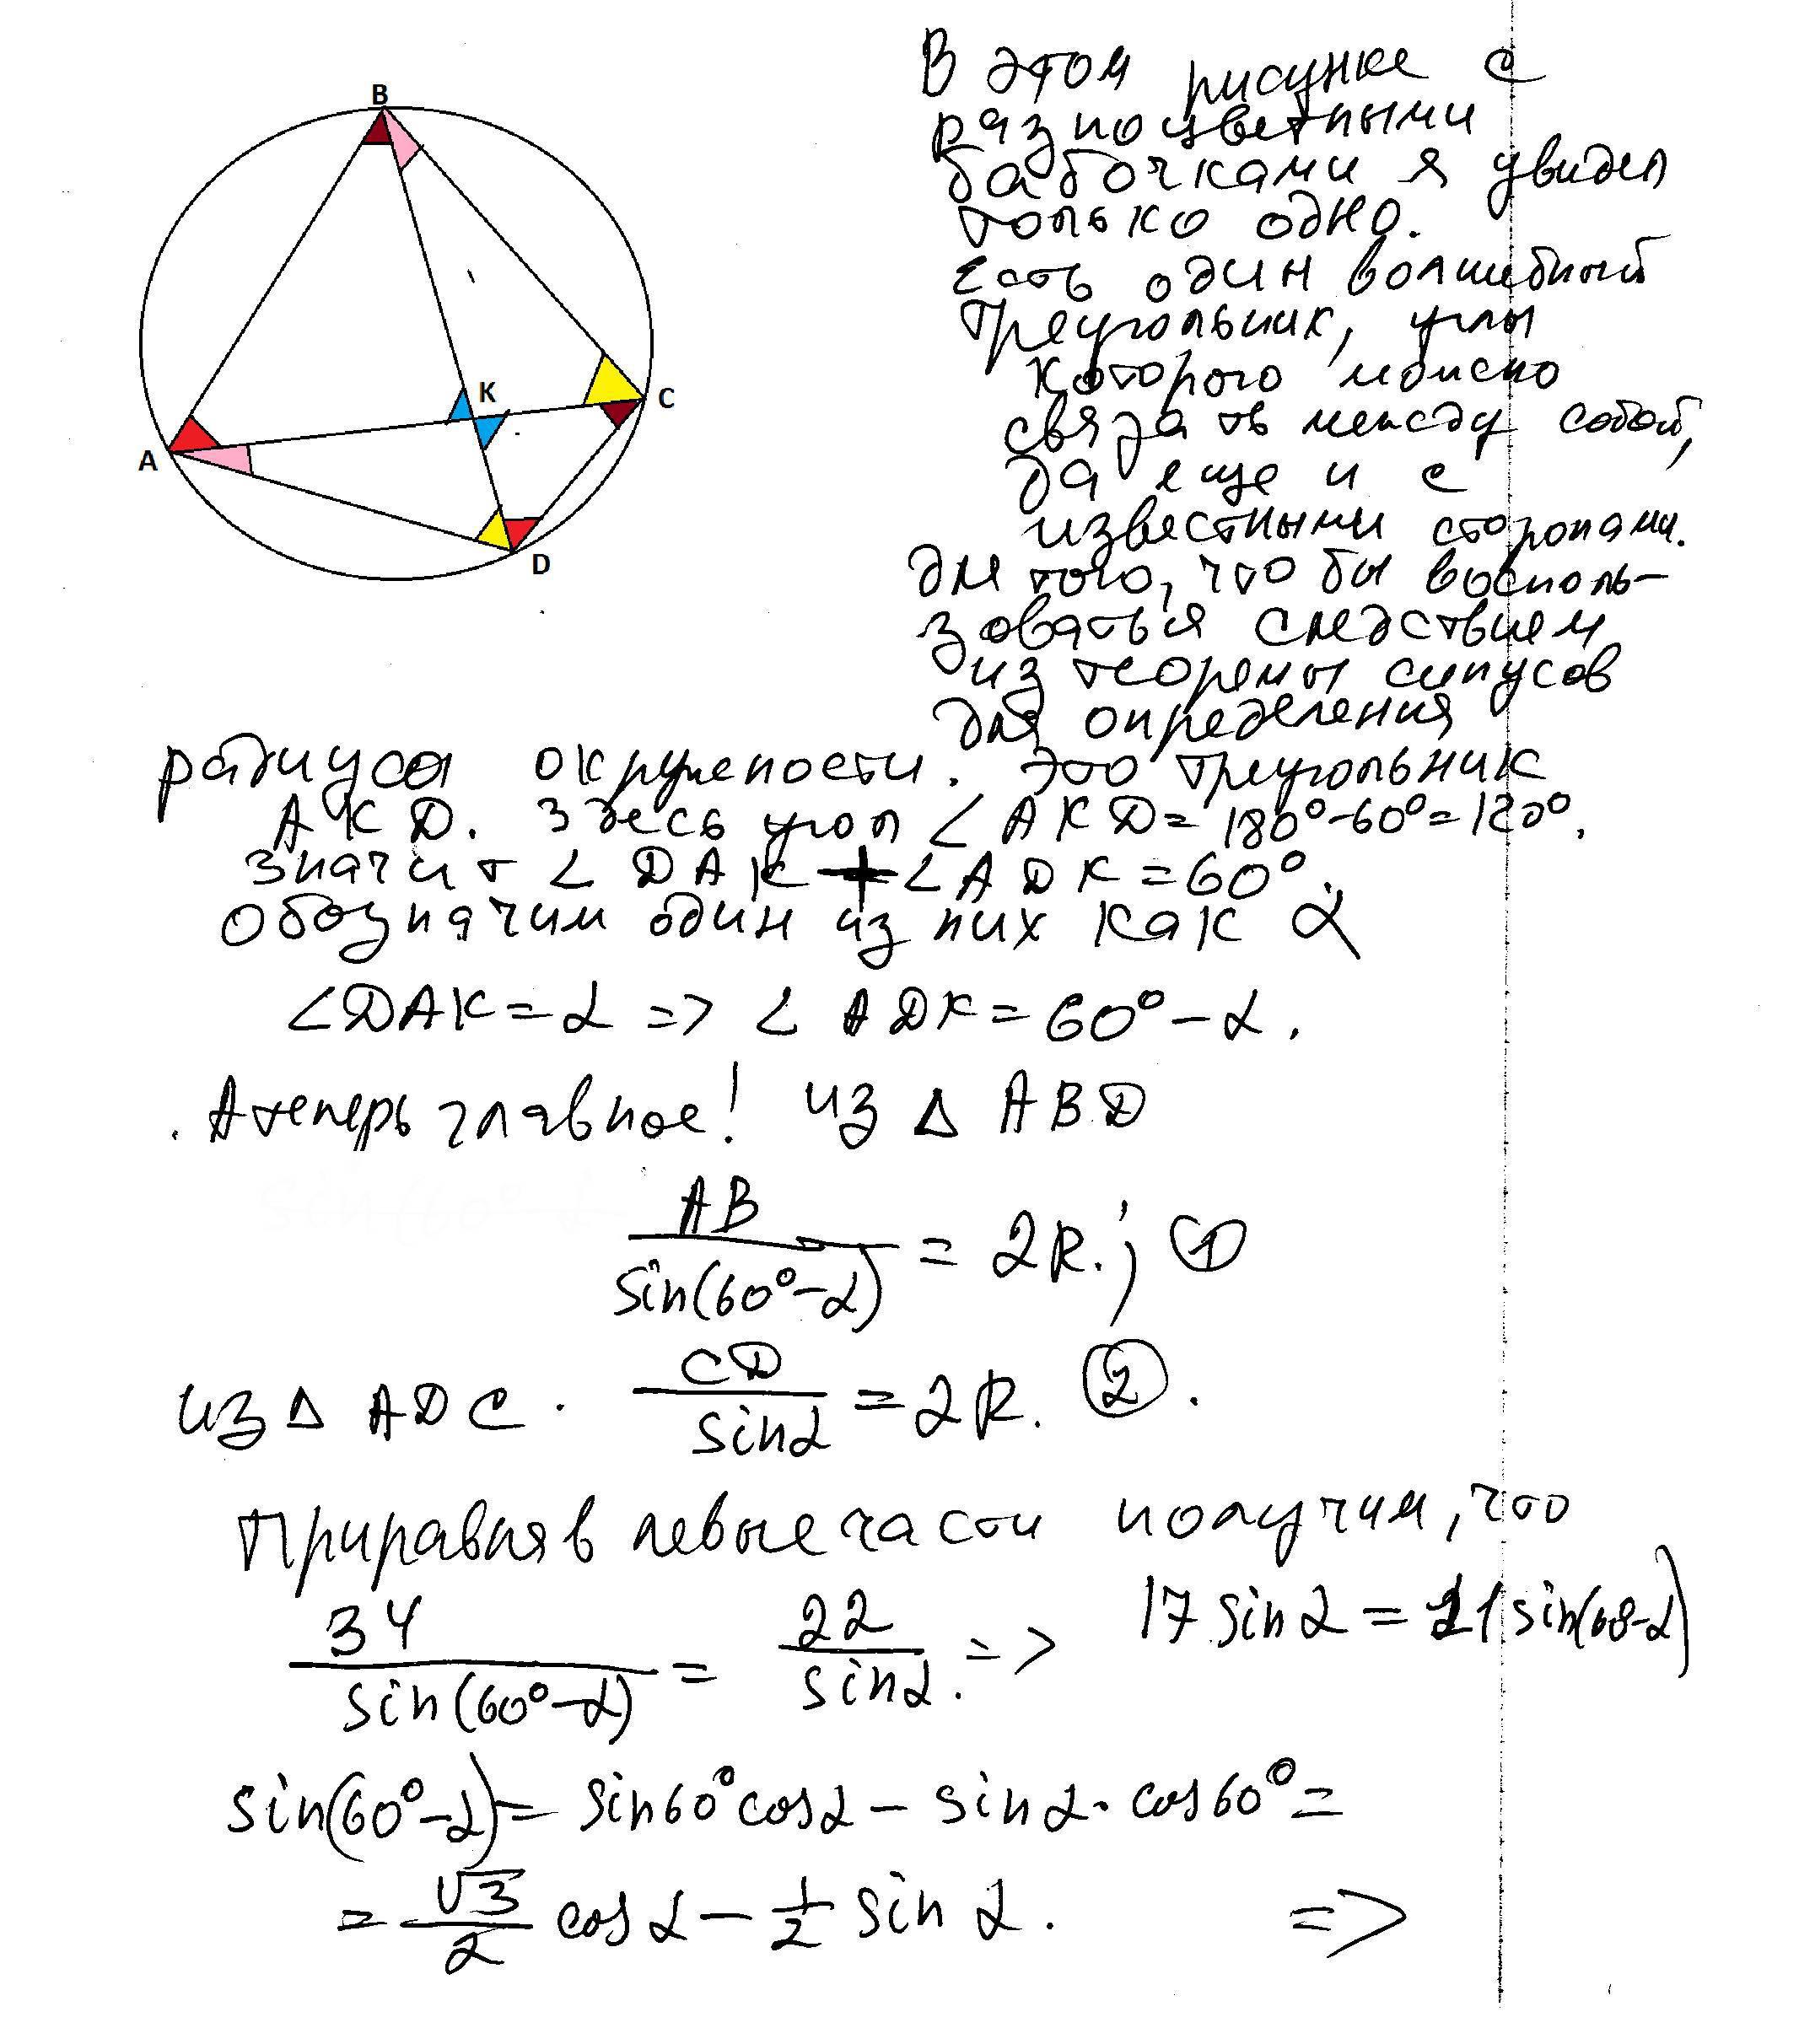 B
K
C
A
D
В этом рисунке с
разноцветными
бабочками я увидел
только одно.
Есть один волшебный
треугольник, углы
которого можно
связать между собой,
да еще и с
известными сторонами.
Для того, что бы восполь-
зоваться следствием
из теоремы синусов
для определения
радиуса окружности. Это треугольник
AKD. Здесь угол ∠AKD = 180° - 60° = 120°.
Значит ∠DAK + ∠ADK = 60°.
Обозначим один из них как α
∠DAK = α => ∠ADK = 60° - α.
А теперь главное! Из Δ ABD
AB / sin(60° - α) = 2R.; ①
Из Δ ADC. CD / sin α = 2R. ②.
Приравняв левые части получим, что
34 / sin(60° - α) = 22 / sin α. => 17 sin α = 11 sin(60-α)
sin(60° - α) = sin 60° cos α - sin α · cos 60° =
= √3/2 cos α - 1/2 sin α. =>